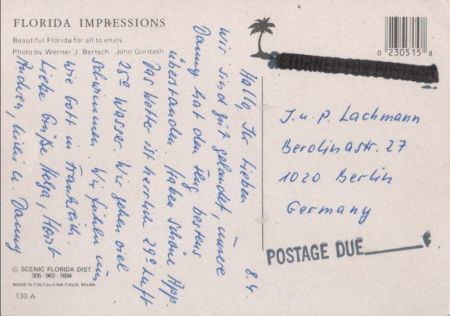 FLORIDA IMPRESSIONS
Beautiful Florida for all to enjoy.
Photo by Werner J. Bertsch John Gordash
8.4.
Hallo Ihr Lieben
Wir sind gut gelandet, unsere
Danny hat den Flug bestens
überstanden. Haben schöne App.
Das Wetter ist herrlich 29° Luft
25° Wasser. Wir gehen viel
schwimmen. Wir fühlen uns
wie Gott in Frankreich.
Liebe Grüße Helga, Horst
Danny
© SCENIC FLORIDA DIST
305-963-7694
MADE IN ITALY by KINA ITALIA, MILAN
130-A
0 230515 8
J. u. P. Lachmann
Berolinastr. 27
1020 Berlin
Germany
POSTAGE DUE ¢